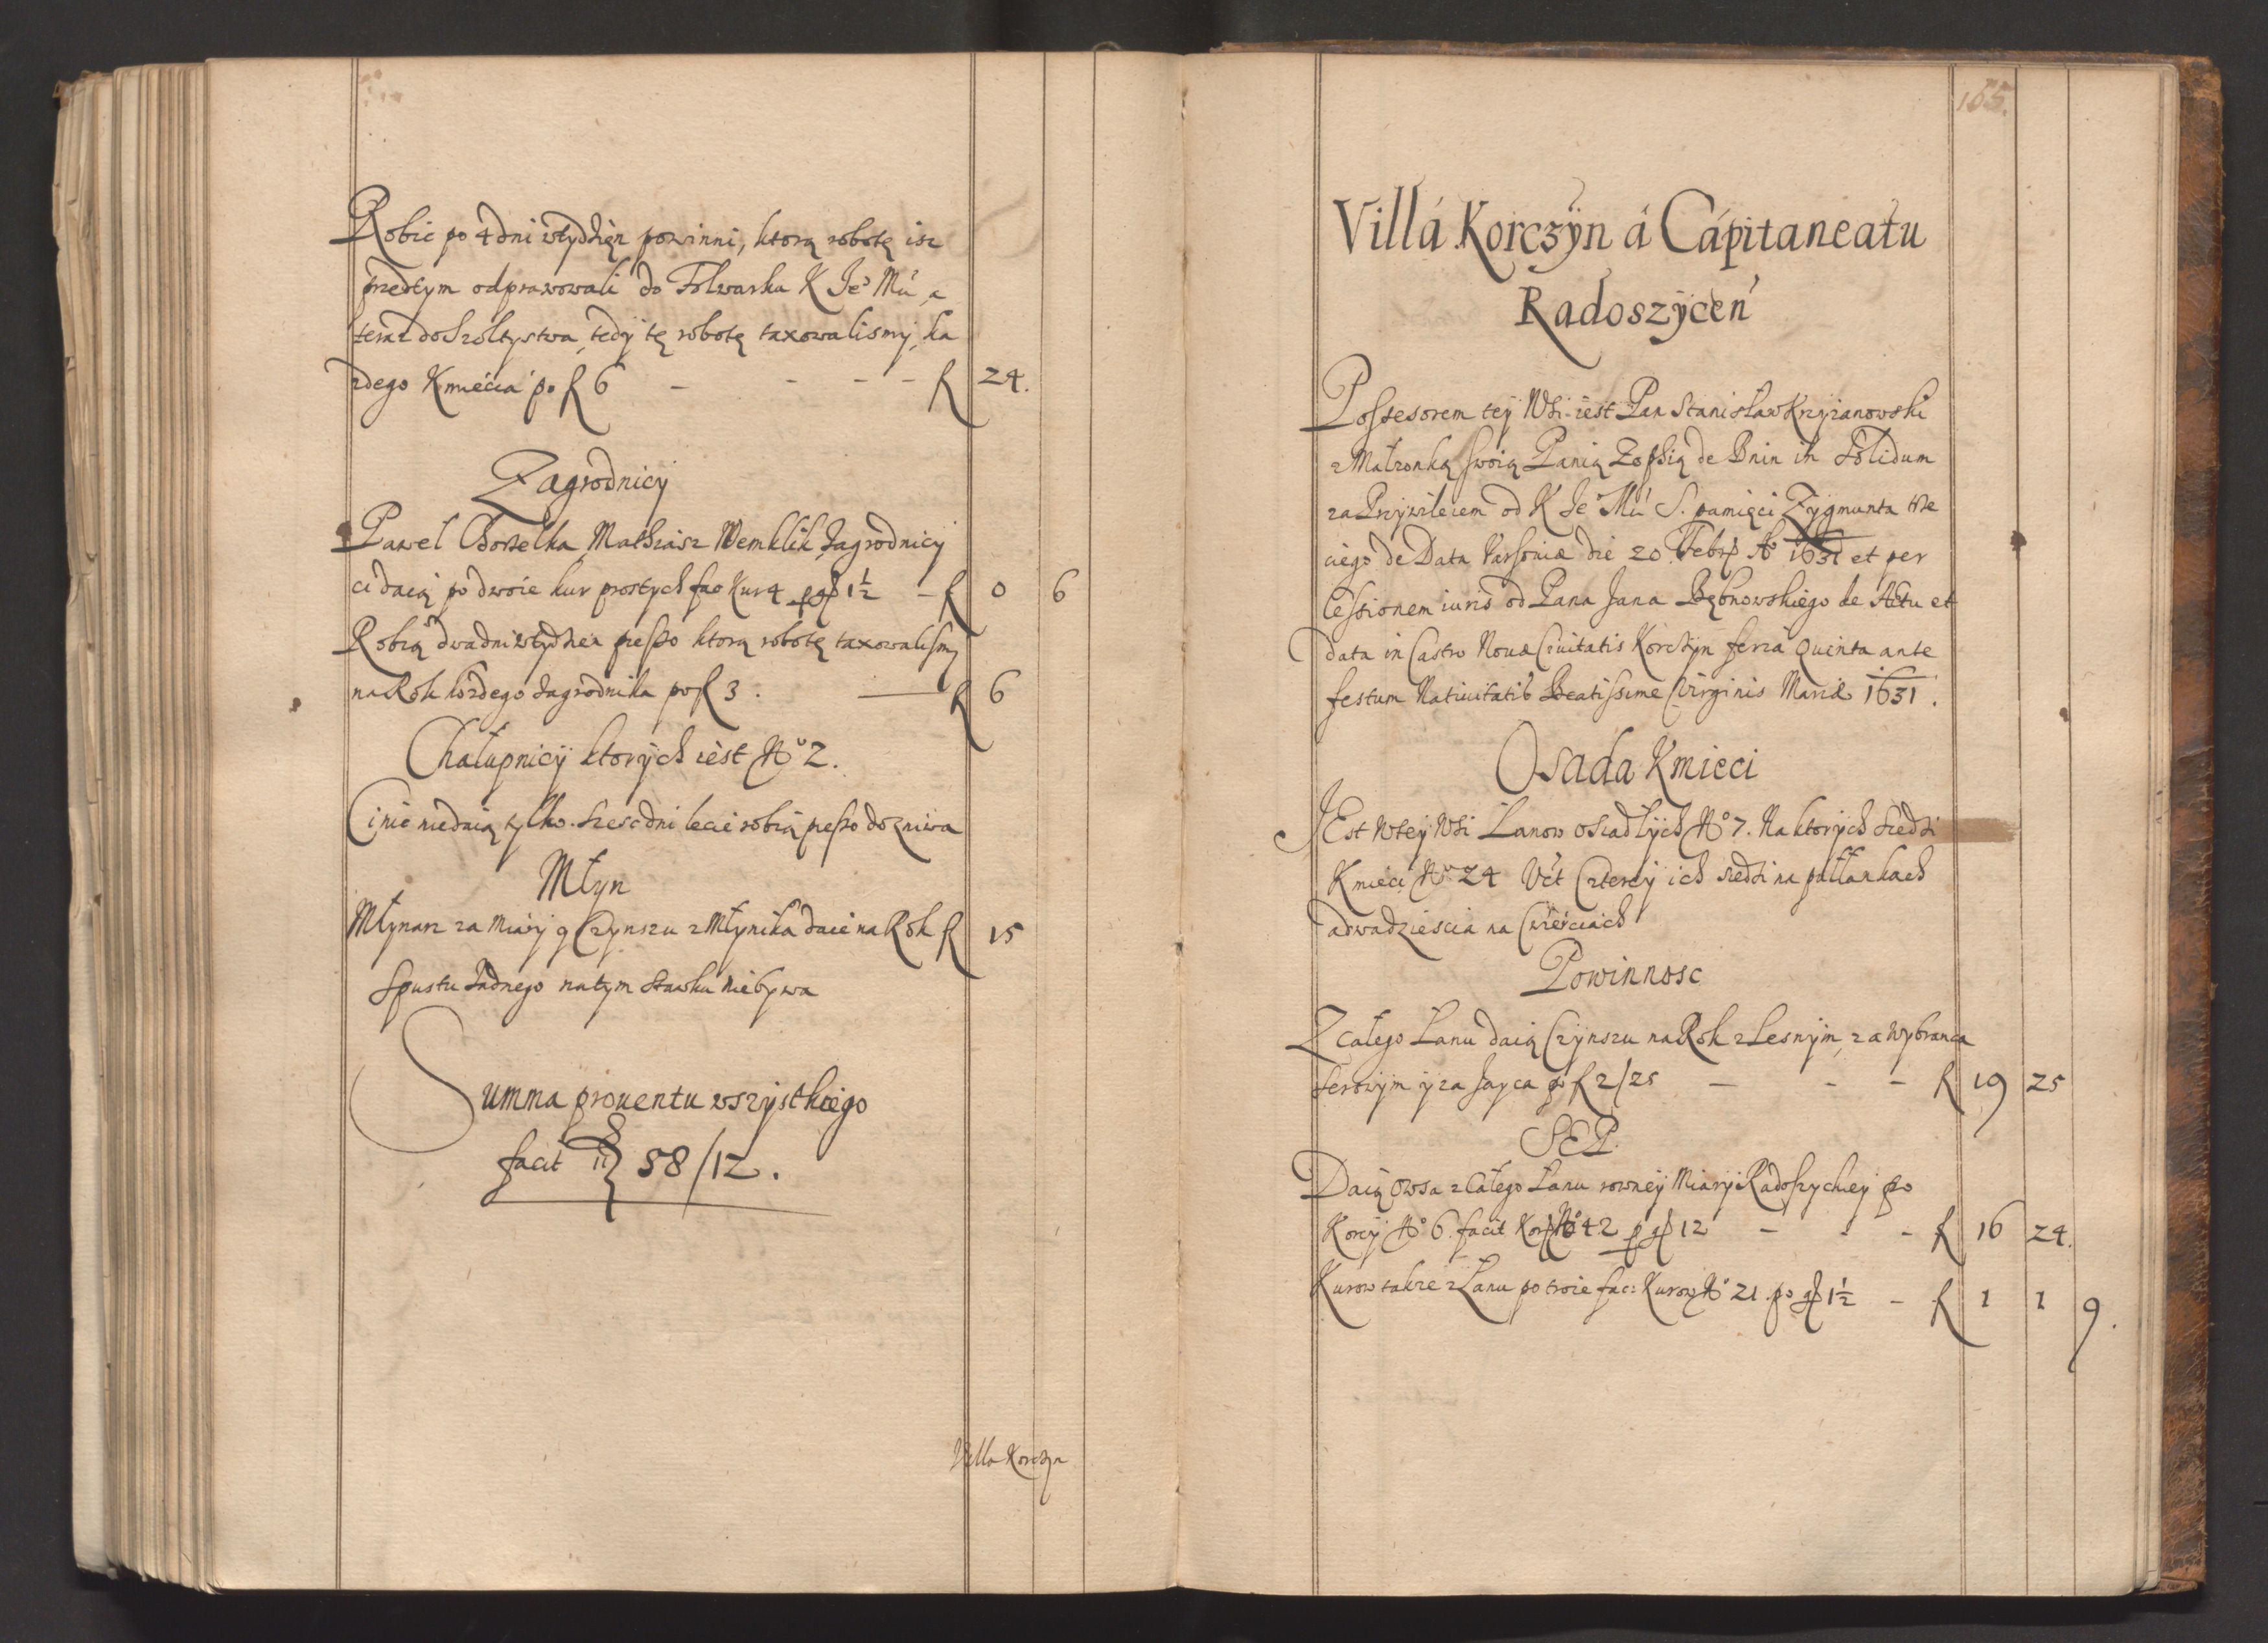 Robic po 4 dni wtydzięn powinni, ktorą robotę isz
przedtym odprawowali do Folwarku K Je° Mći, a
teraz do Szoltystwa, tedy tę robotę taxowalismy, ka
zdego Kmiecia po f 6 - - - - f 24.
Zagrodnicy
Paweł Mathiasz Zagrodnicy
ci daią po dwoie kur prostych fac Kur 4 p gr 1½ - f 0 6
Robią dwa dni wtydzien pieszo ktorą robotę taxowalismy
na Rok kozdego Zagrodnika po f 3. — f 6
Chałupnicy ktorych iest N° 2.
Ci nic niedaią tylko szesc dni lecie robią pieszo do zniwa
Młyn
Młynarz za Miary y Czynszu z Młynika daie na Rok f 15
Spustu Zadnego natym stawku niebywa
Summa prouentu wszystkiego
facit f 58/12.
Villa Korczyn
165.
Villá Korczyn á Cápitaneatu
Radoszÿcen
Possesorem teÿ Wsi iest Pan Stanisław Krzyzanowski
z Małzonką swoią Panią Zophią de Bnin in Solidum
za Przywileiem od K Je° Mći S. pamięci Zygmunta trze
ciego de Data Varsoviæ die 20 Febr A° 1631 et per
Cessionem iuris od Pana Jana Bębnowskiego de Actu et
data in Castro Nouæ Ciuitatis Korczyn feria Quinta ante
festum Natiuitatis Beatissime Virginis Mariæ 1631.
Osada Kmieci
JEst wteÿ Wsi Lanow osiadłÿch N° 7. Na ktorÿch siedzi
Kmieci N° 24 Vt Czterey ich siedzi na pułłankach
a dwadziescia na Cwierciach
Powinnosc
Z całego Lanu daią Czynszu na Rok z Lesnÿm, za Wybranca
Serowym y za Jayca po f 2/25 - - - f 19 25
SEP.
Daią Owsa z Całego Lanu rowneÿ Miarÿ Radoszyckieÿ po
Korcÿ N° 6. facit Kor N° 42 p gr 12 - - - f 16 24.
Kurow takze z Lanu po troie fac: Kurow N° 21 po gr 1½ - f 1 1 9.